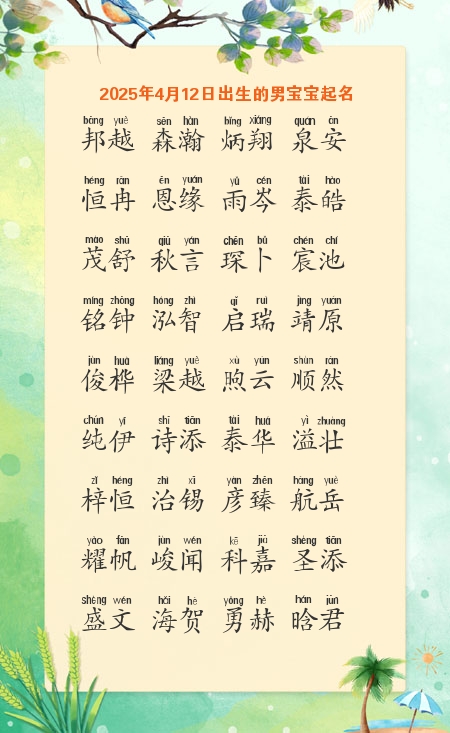 2025年4月12日出生的男宝宝起名
bāng yuè sēn hàn bǐng xiáng quán ān
邦越 森瀚 炳翔 泉安
héng rǎn ēn yuán yǔ cén tài hào
恒冉 恩缘 雨岑 泰皓
mào shū qiū yán chēn bǔ chén chí
茂舒 秋言 琛卜 宸池
míng zhōng hóng zhì qǐ ruì jìng yuán
铭钟 泓智 启瑞 靖原
jùn huà liáng yuè xù yún shùn rán
俊桦 梁越 煦云 顺然
chún yī shī tiān tài huá yì zhuàng
纯伊 诗添 泰华 溢壮
zǐ héng zhì xī yàn zhēn háng yuè
梓恒 治锡 彦臻 航岳
yào fān jùn wén kē jiā shèng tiān
耀帆 峻闻 科嘉 圣添
shèng wén hǎi hè yǒng hè hán jūn
盛文 海贺 勇赫 晗君